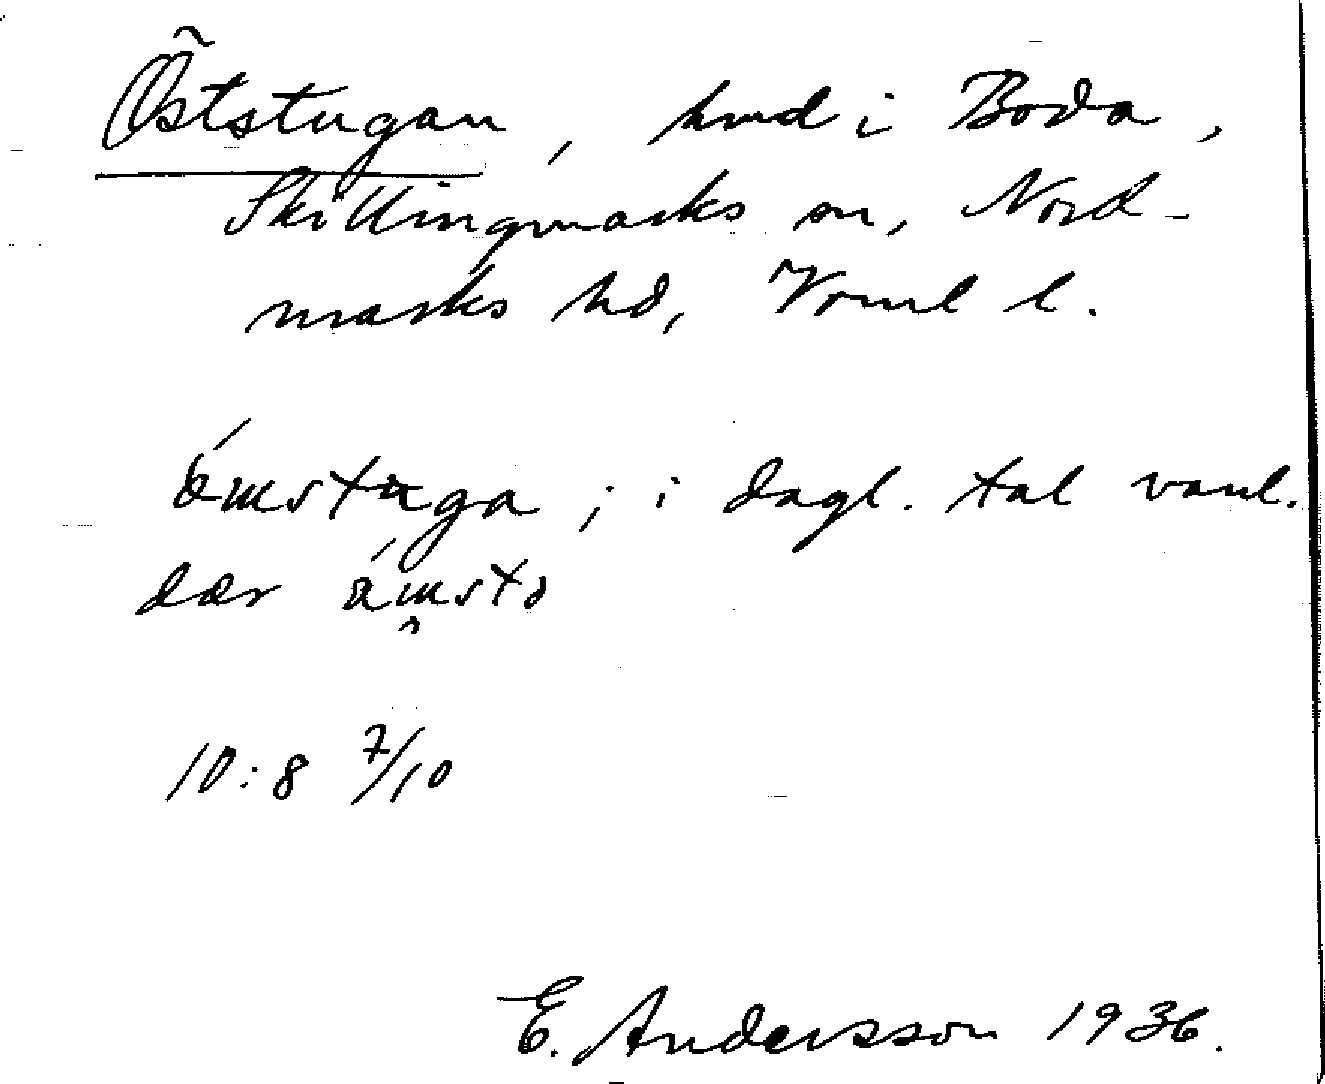 Öststugan, hmd i Boda,
Skillingmarks sn, Nord-
marks hd, Vrml l.
i dagl. tal vanl.
dær
10:8 7/10
E. Andersson 1936.